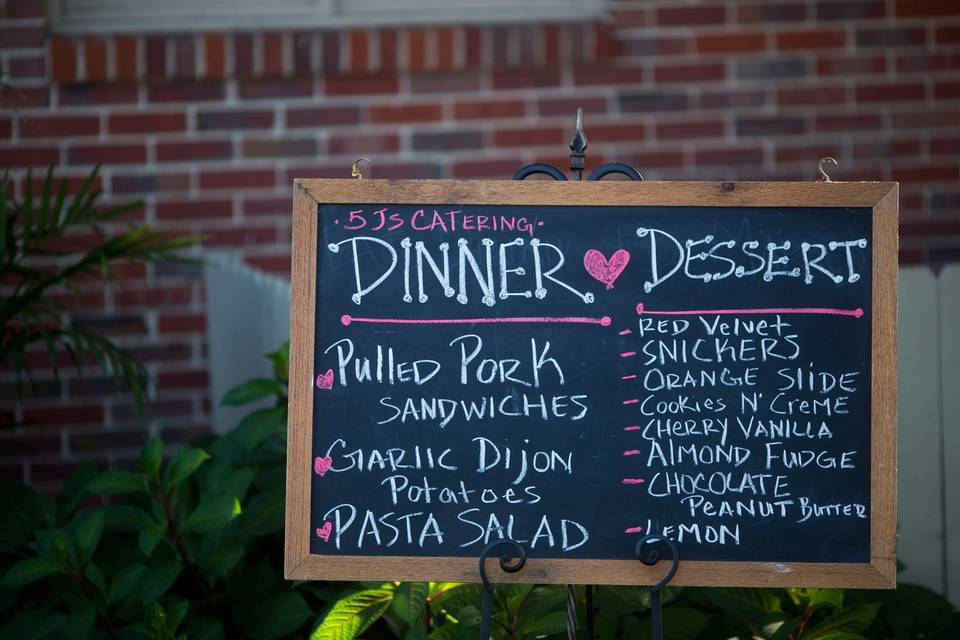 5 Js CATERING
DINNER
Pulled Pork
SANDWICHES
GARLIC Dijon
Potatoes
PASTA SALAD
DESSERT
RED Velvet
SNICKERS
ORANGE SlIDE
COOKIES N' CReME
CHERRY VANILLA
ALMOND FUDGE
CHOCOLATE
PEANUT BUTTER
LEMON